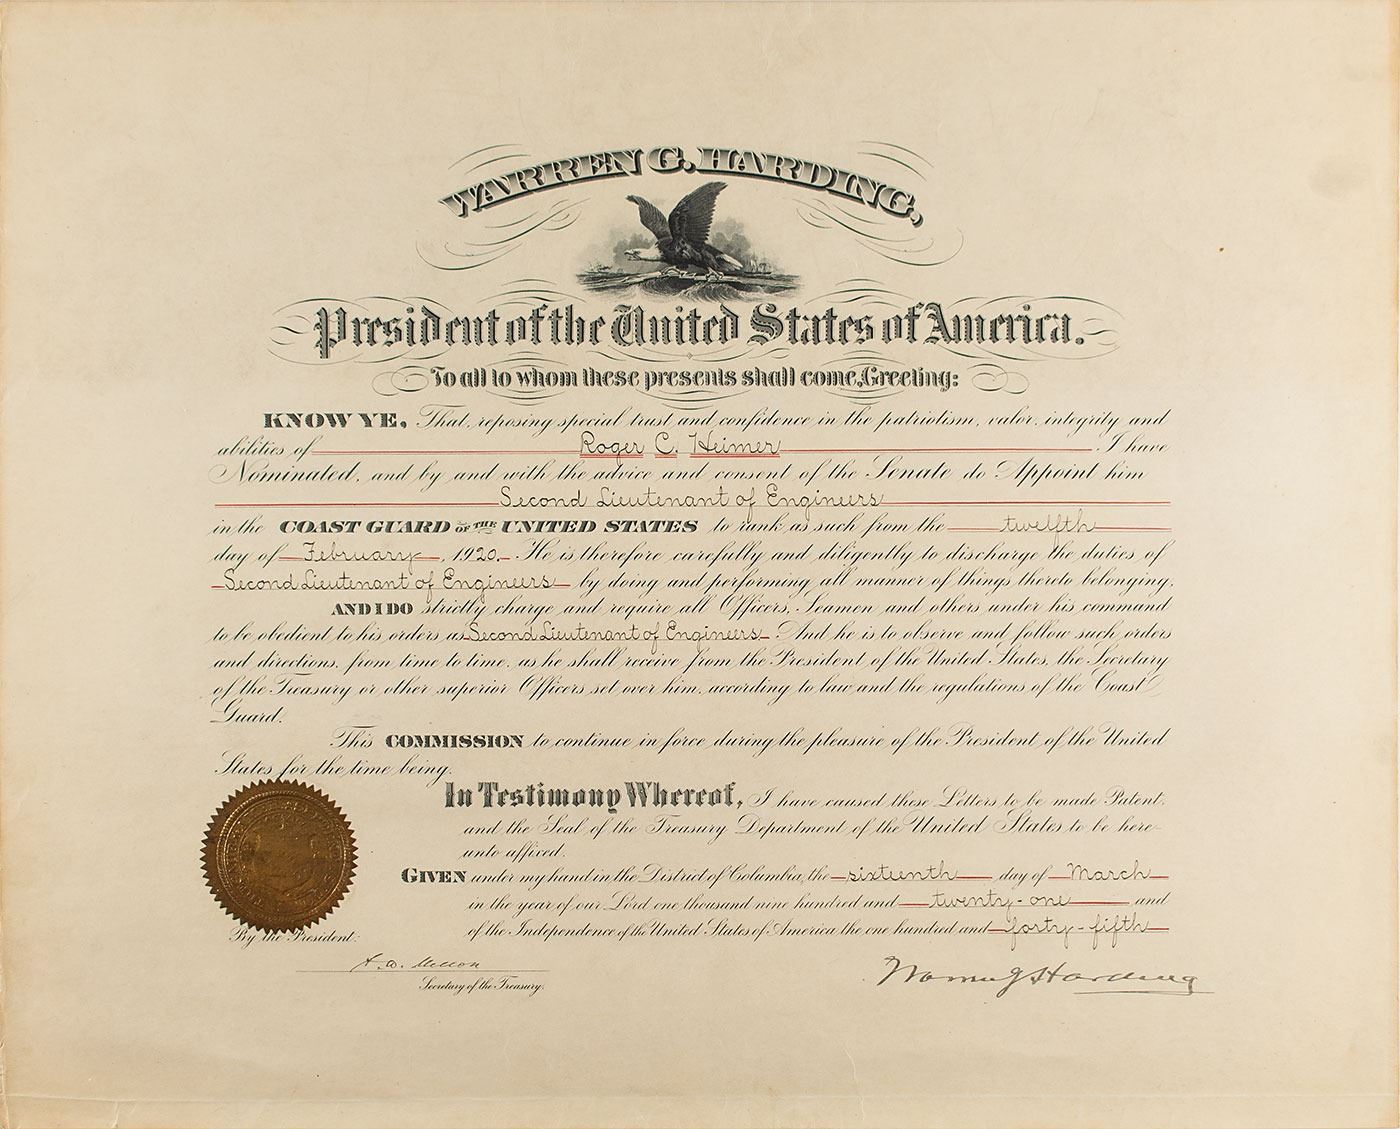 WARREN G. HARDING,
President of the United States of America.
To all to whom these presents shall come, Greeting:
KNOW YE, That, reposing special trust and confidence in the patriotism, valor, integrity and
abilities of Roger C. Heimer I have
Nominated, and by and with the advice and consent of the Senate do Appoint him
Second Lieutenant of Engineers
in the COAST GUARD OF THE UNITED STATES to rank as such from the twelfth
day of February, 1920. He is therefore carefully and diligently to discharge the duties of
Second Lieutenant of Engineers by doing and performing all manner of things thereto belonging.
AND I DO strictly charge and require all Officers, Seamen and others under his command
to be obedient to his orders as Second Lieutenant of Engineers. And he is to observe and follow such orders
and directions, from time to time, as he shall receive from the President of the United States, the Secretary
of the Treasury or other superior Officers set over him, according to law and the regulations of the Coast
Guard.
This COMMISSION to continue in force during the pleasure of the President of the United
States for the time being.
In Testimony Whereof, I have caused these Letters to be made Patent,
and the Seal of the Treasury Department of the United States to be here-
unto affixed.
GIVEN under my hand in the District of Columbia, the sixteenth day of March
in the year of our Lord one thousand nine hundred and twenty-one and
of the Independence of the United States of America the one hundred and forty-fifth
By the President:
A. W. Mellon
Secretary of the Treasury.
Warren G Harding